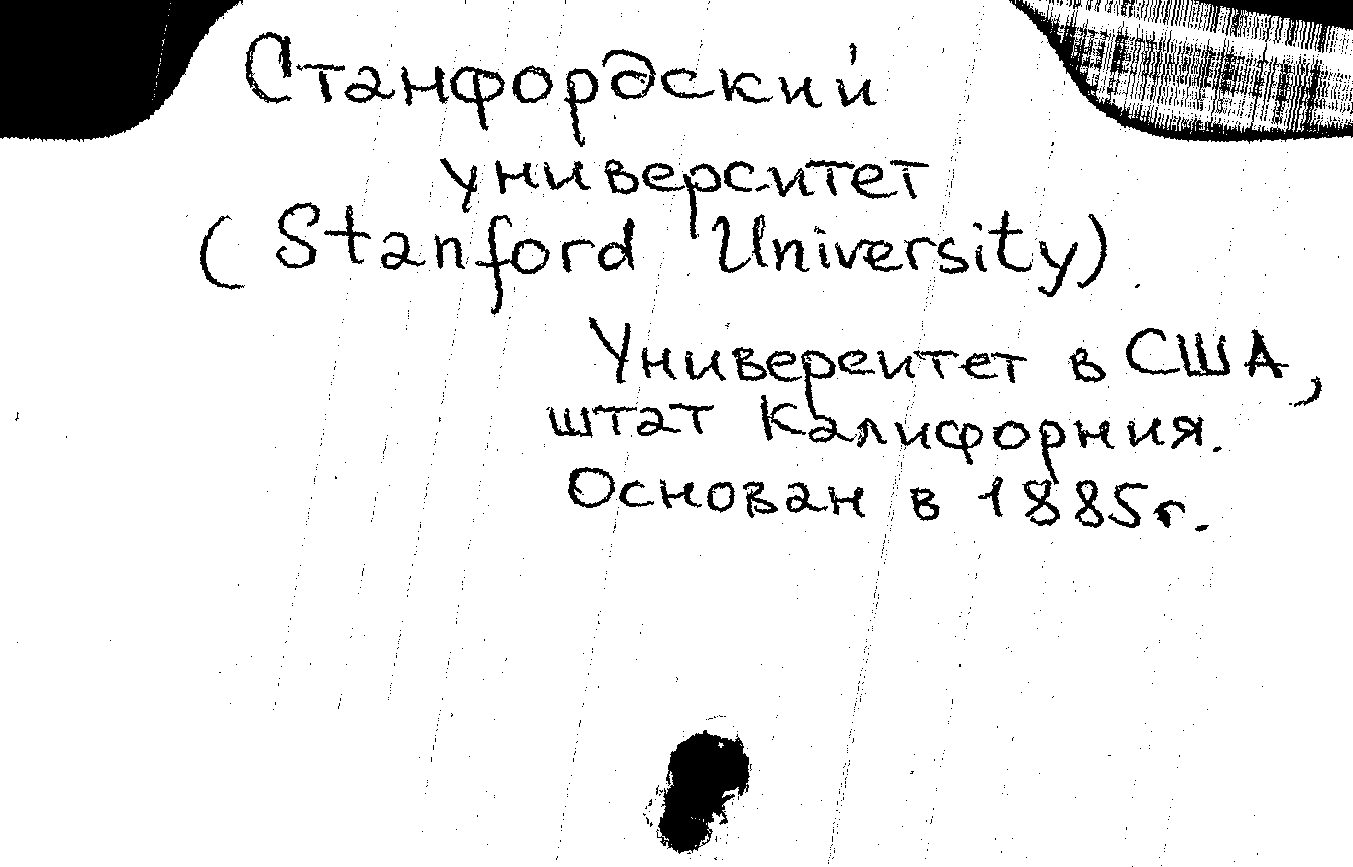 Станфордский
университет
(Stanford University)
Университет в США,
штат Калифорния.
Основан в 1885г.